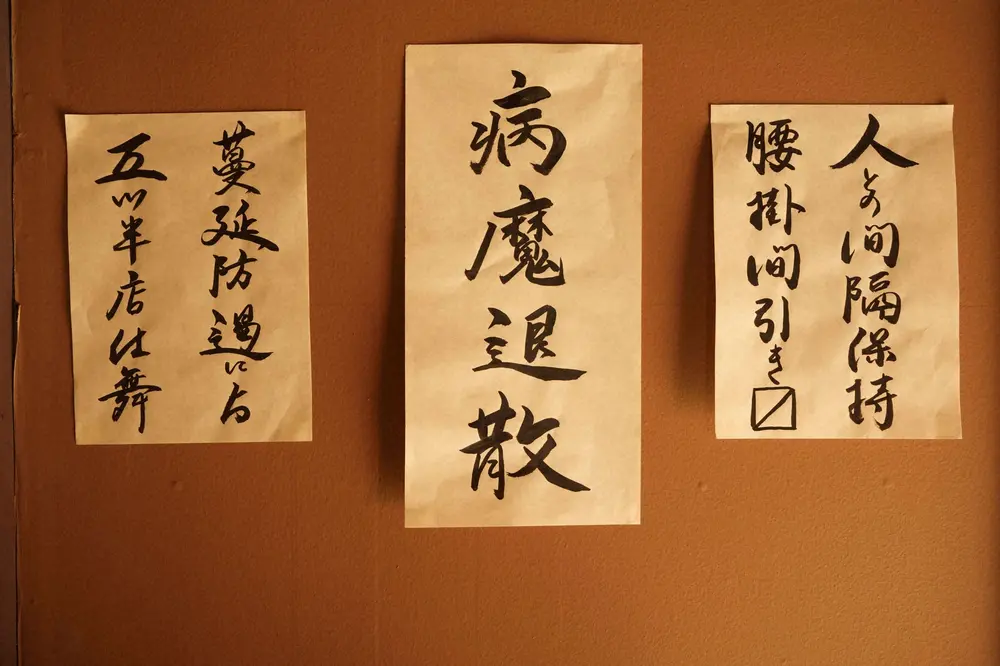 人との間隔保持
腰掛間引き〼
病魔退散
蔓延防遏に
五ツ半店仕舞